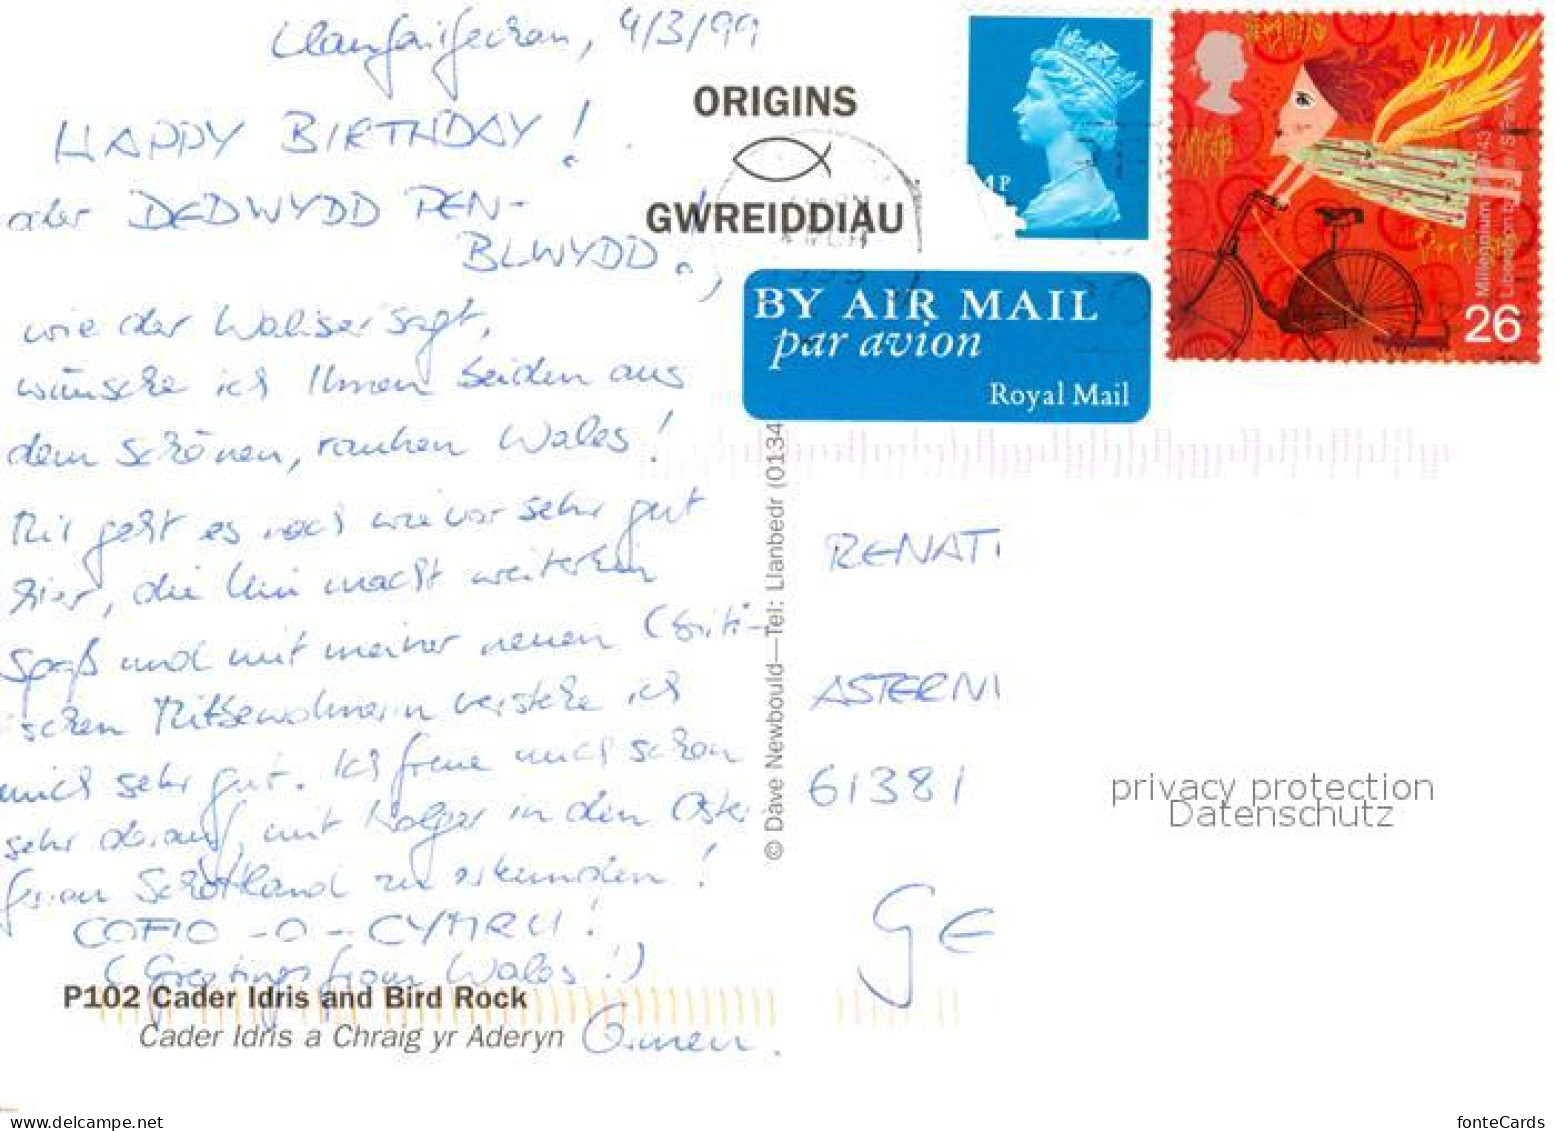 Llanfairfechan, 4/3/99
HAPPY BIRTHDAY!
oder DEDWYDD PEN-
BLWYDD!,
wie der Waliser sagt,
wünsche ich Ihnen beiden aus
dem schönen, rauhen Wales!
Mir geht es nach wie vor sehr gut
hier, die Uni macht weiterhin
Spaß und mit meiner neuen (briti-
schen Mitbewohnerin verstehe ich
mich sehr gut. Ich freue mich schon
sehr darauf, mit Holger in den Oster
ferien Schottland zu erkunden!
COFIO-O-CYMRU!
(Greetings from Wales!)
P102 Cader Idris and Bird Rock
Cader Idris a Chraig yr Aderyn
ORIGINS
GWREIDDIAU
4P
Millennium
26
BY AIR MAIL
par avion
Royal Mail
© Dave Newbould—Tel: Llanbedr (0134
RENAT
ASTERN
61381
GE
privacy protection
Datenschutz
delcampe.net
fonteCards